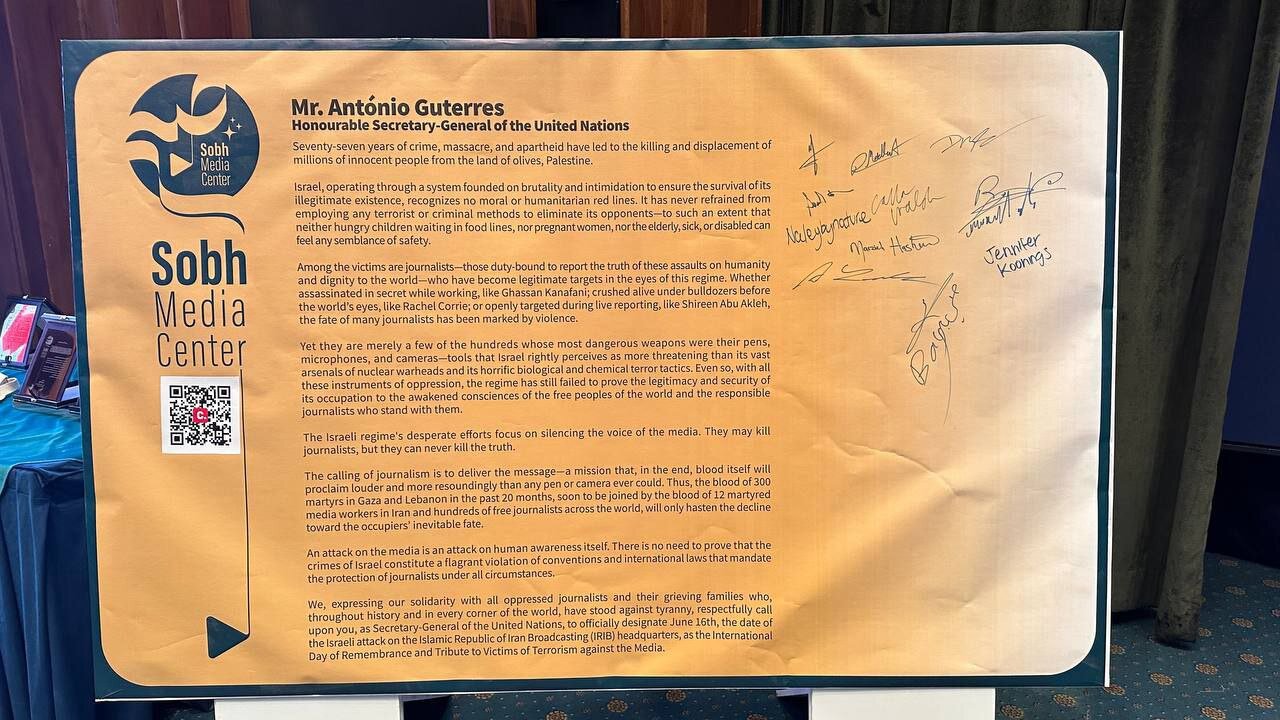 Sobh
Media
Center
Sobh
Media
Center
Mr. António Guterres
Honourable Secretary-General of the United Nations
Seventy-seven years of crime, massacre, and apartheid have led to the killing and displacement of
millions of innocent people from the land of olives, Palestine.
Israel, operating through a system founded on brutality and intimidation to ensure the survival of its
illegitimate existence, recognizes no moral or humanitarian red lines. It has never refrained from
employing any terrorist or criminal methods to eliminate its opponents—to such an extent that
neither hungry children waiting in food lines, nor pregnant women, nor the elderly, sick, or disabled can
feel any semblance of safety.
Among the victims are journalists—those duty-bound to report the truth of these assaults on humanity
and dignity to the world—who have become legitimate targets in the eyes of this regime. Whether
assassinated in secret while working, like Ghassan Kanafani; crushed alive under bulldozers before
the world's eyes, like Rachel Corrie; or openly targeted during live reporting, like Shireen Abu Akleh,
the fate of many journalists has been marked by violence.
Yet they are merely a few of the hundreds whose most dangerous weapons were their pens,
microphones, and cameras—tools that Israel rightly perceives as more threatening than its vast
arsenals of nuclear warheads and its horrific biological and chemical terror tactics. Even so, with all
these instruments of oppression, the regime has still failed to prove the legitimacy and security of
its occupation to the awakened consciences of the free peoples of the world and the responsible
journalists who stand with them.
The Israeli regime's desperate efforts focus on silencing the voice of the media. They may kill
journalists, but they can never kill the truth.
The calling of journalism is to deliver the message—a mission that, in the end, blood itself will
proclaim louder and more resoundingly than any pen or camera ever could. Thus, the blood of 300
martyrs in Gaza and Lebanon in the past 20 months, soon to be joined by the blood of 12 martyred
media workers in Iran and hundreds of free journalists across the world, will only hasten the decline
toward the occupiers' inevitable fate.
An attack on the media is an attack on human awareness itself. There is no need to prove that the
crimes of Israel constitute a flagrant violation of conventions and international laws that mandate
the protection of journalists under all circumstances.
We, expressing our solidarity with all oppressed journalists and their grieving families who,
throughout history and in every corner of the world, have stood against tyranny, respectfully call
upon you, as Secretary-General of the United Nations, to officially designate June 16th, the date of
the Israeli attack on the Islamic Republic of Iran Broadcasting (IRIB) headquarters, as the International
Day of Remembrance and Tribute to Victims of Terrorism against the Media.
Calla
Walsh
Jennifer
Koonings